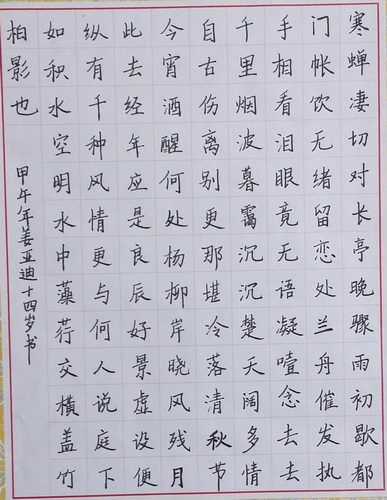 寒蝉凄切对长亭晚骤雨初歇都
门帐饮无绪留恋处兰舟催发执
手相看泪眼竟无语凝噎念去去
千里烟波暮霭沉沉楚天阔多情
自古伤离别更那堪冷落清秋节
今宵酒醒何处杨柳岸晓风残月
此去经年应是良辰好景虚设便
纵有千种风情更与何人说庭下
如积水空明水中藻荇交横盖竹
柏影也
甲午年姜亚迪十四岁书